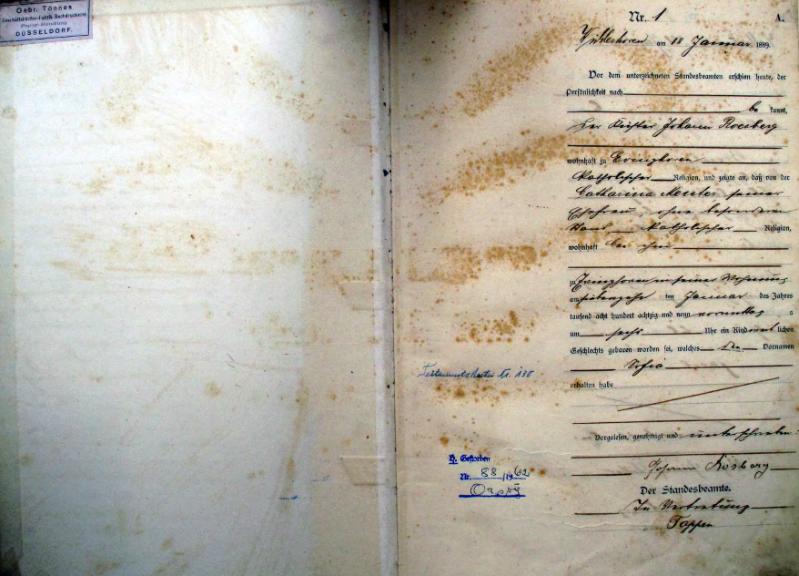 Gebr. Tönnes
DÜSSELDORF.
Nr. 1 A.
am 18 Januar 1889.
Vor dem unterzeichneten Standesbeamten erschien heute, der
Persönlichkeit nach
be kannt,
Der Johann Roesberg
wohnhaft zu
katholischer Religion, und zeigte an, daß von der
Catharina seiner
Ehefrau, ohne besonderen
Stand katholischer Religion,
wohnhaft bei ihm
zu in seiner Wohnung
am siebenzehn ten Januar des Jahres
tausend acht hundert achtzig und neun vormittags
um sechs Uhr ein Kind lichen
Geschlechts geboren worden sei, welches den Vornamen
Sofia
erhalten habe
Vorgelesen, genehmigt und unterschrieben
Johann Rösberg
Der Standesbeamte.
In Vertretung
Tappen
Nr. 138
H. Gestorben
Nr. 88/1962